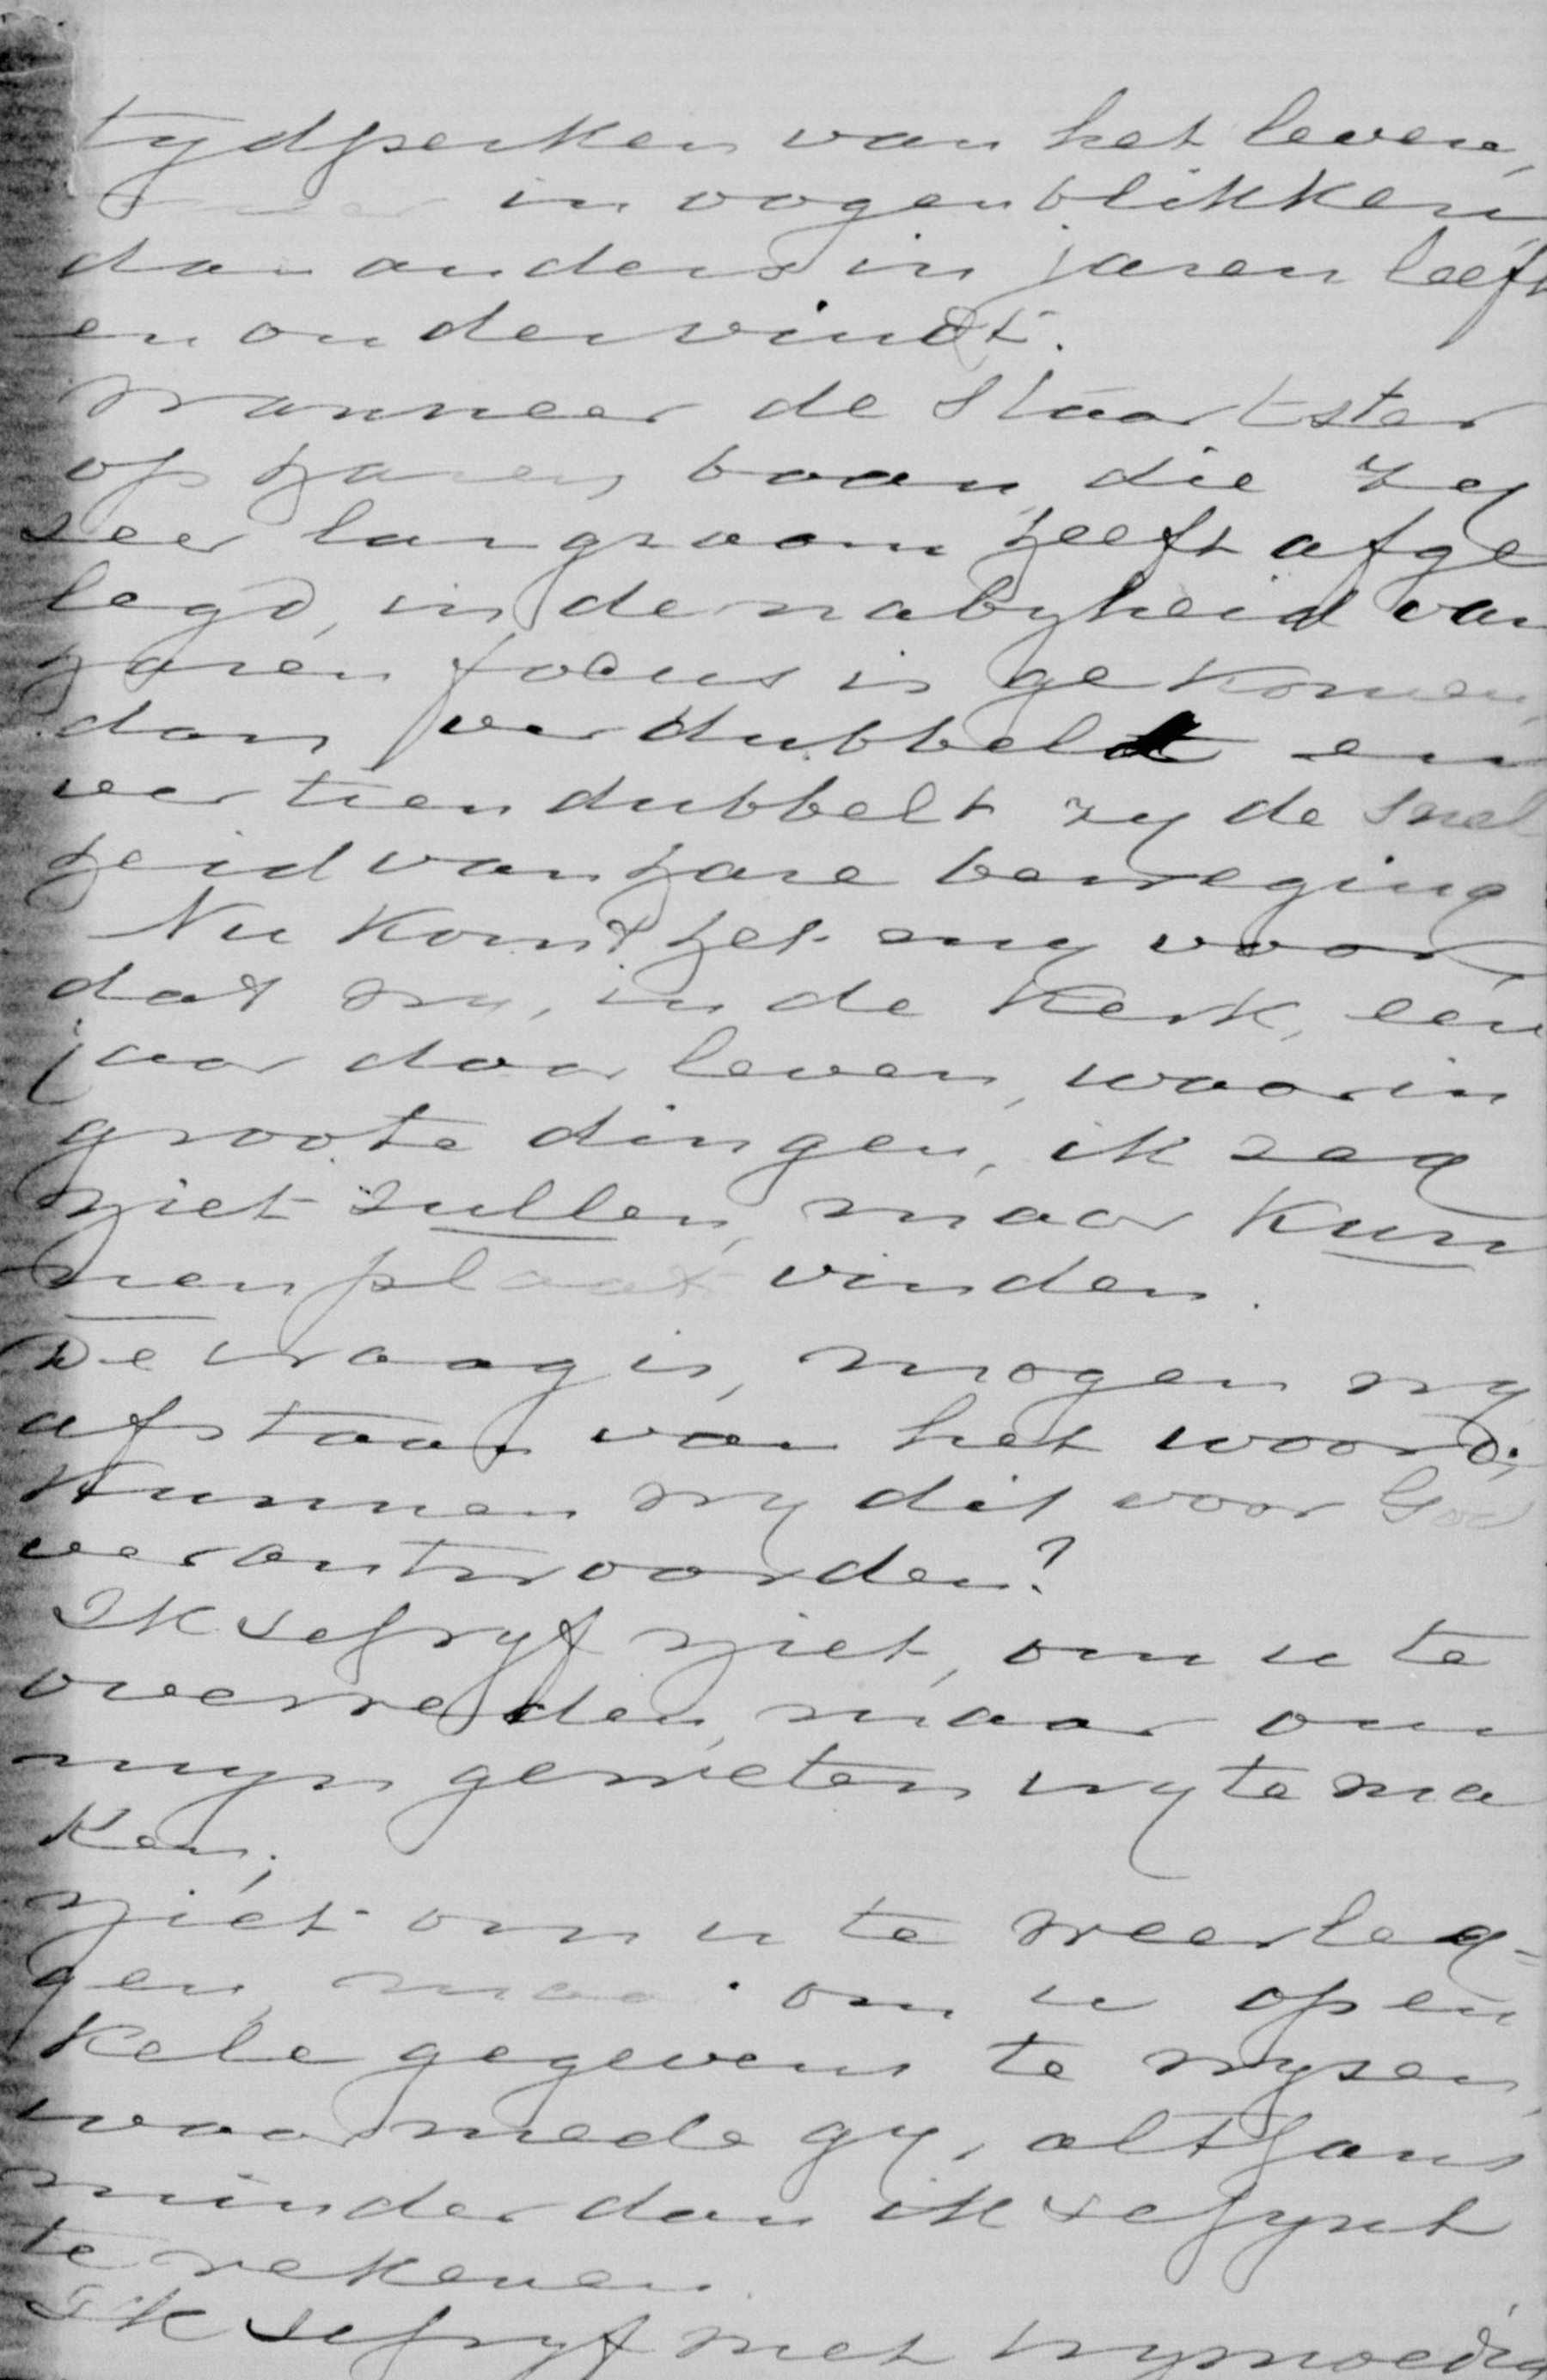 tydperken van het leven,
in oogenblikken,
dan anders in jaren leeft
en ondervindt.
Wanneer de Staartster
op haren baan, die zy
seer langsaam heeft afge
legd, in de nabyheid van
haren focus is gekomen,
dan verdubbelt en
vertiendubbelt zy de snel
heid van hare beweging.
Nu komt het my voor
dat wy, in de Kerk, een
jaar door leven, waarin
groote dingen, ik seg
niet sullen, maar kun
nen plaats vinden.
De vraag is, mogen wy
afstaan van het woord;
Kunnen wy dit voor God
verantwoorden?
Ik schryf niet, om u te
overreden, maar om
myn geweten vry te ma
ken;
niet om u te weerleg=
gen, maar om u op en
kele gegevens te wysen,
waarmede gy, althans
minder dan ik schynt
te rekenen.
Ik schryf met vrymoedig